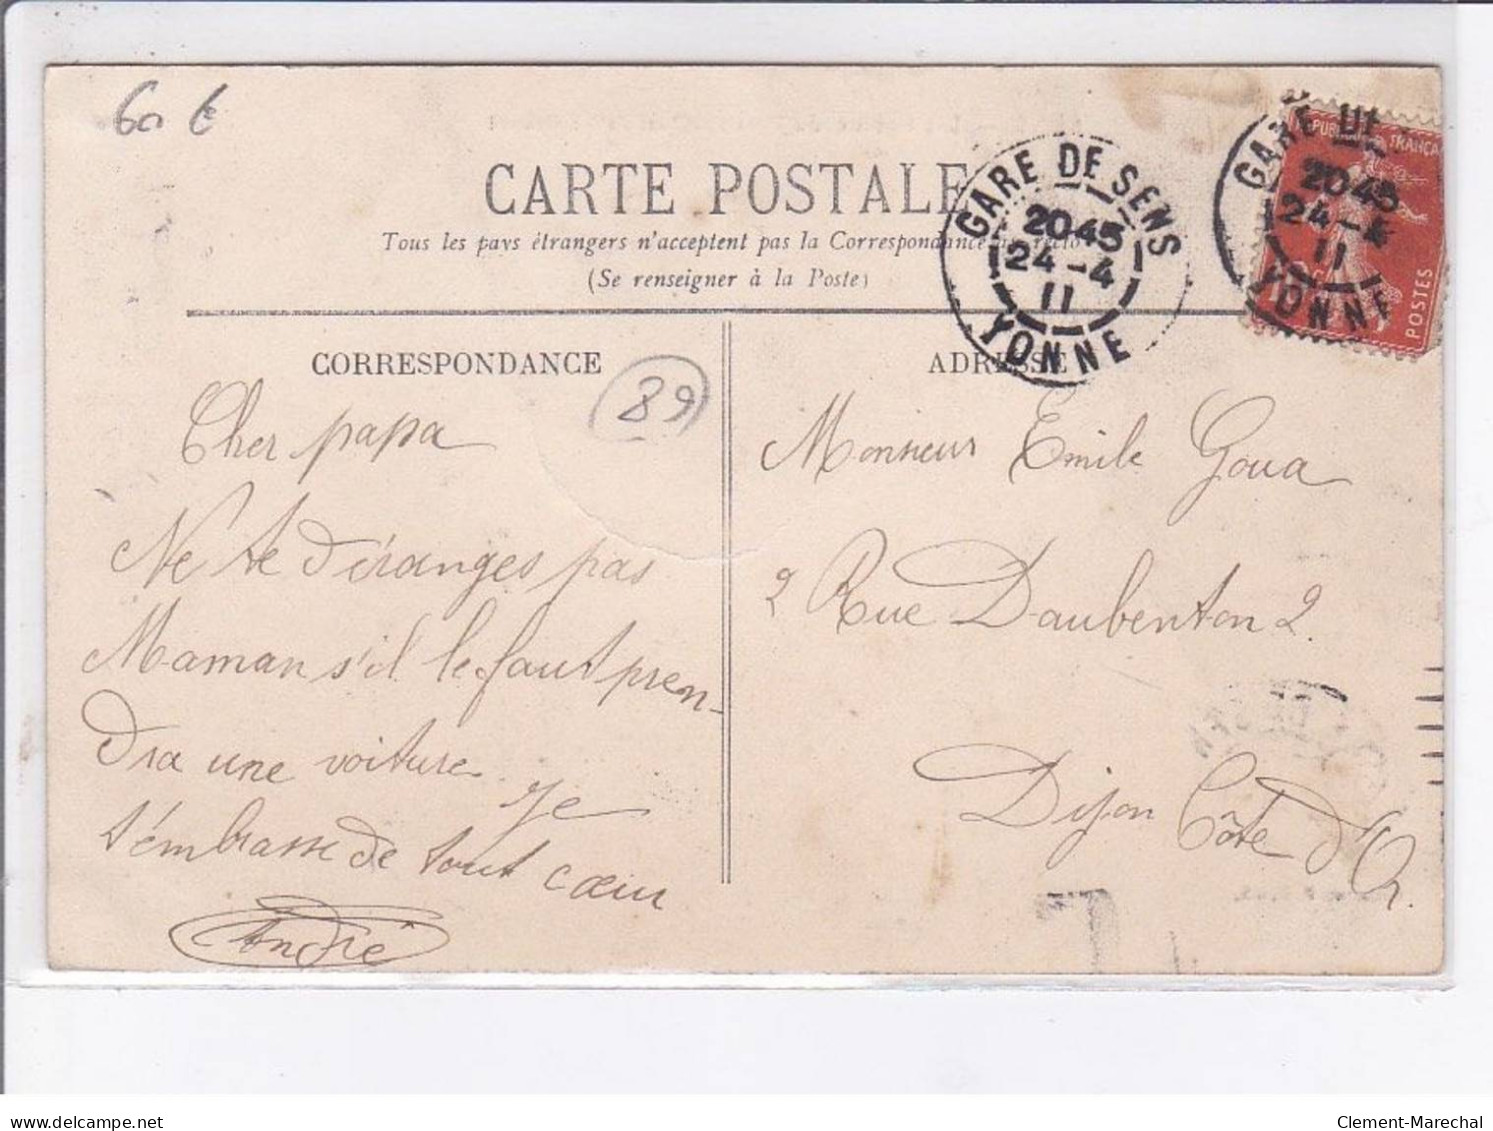 60 €
CARTE POSTALE
Tous les pays étrangers n'acceptent pas la Correspondance au recto
(Se renseigner à la Poste)
GARE DE SENS
20 45
24 - 4
11
YONNE
GARE DE
20 45
24 - 4
11
YONNE
REPUBLIQUE FRANÇAISE
POSTES
CORRESPONDANCE
89
ADRESSE
Cher papa
Ne te déranges pas
Maman s'il le faut pren-
dra une voiture. Je
t'embrasse de tout cœur
André
Monsieur Emile Goua
2 Rue Daubenton 2.
Dijon Côte d'Or.
Clement-Marechal
delcampe.net